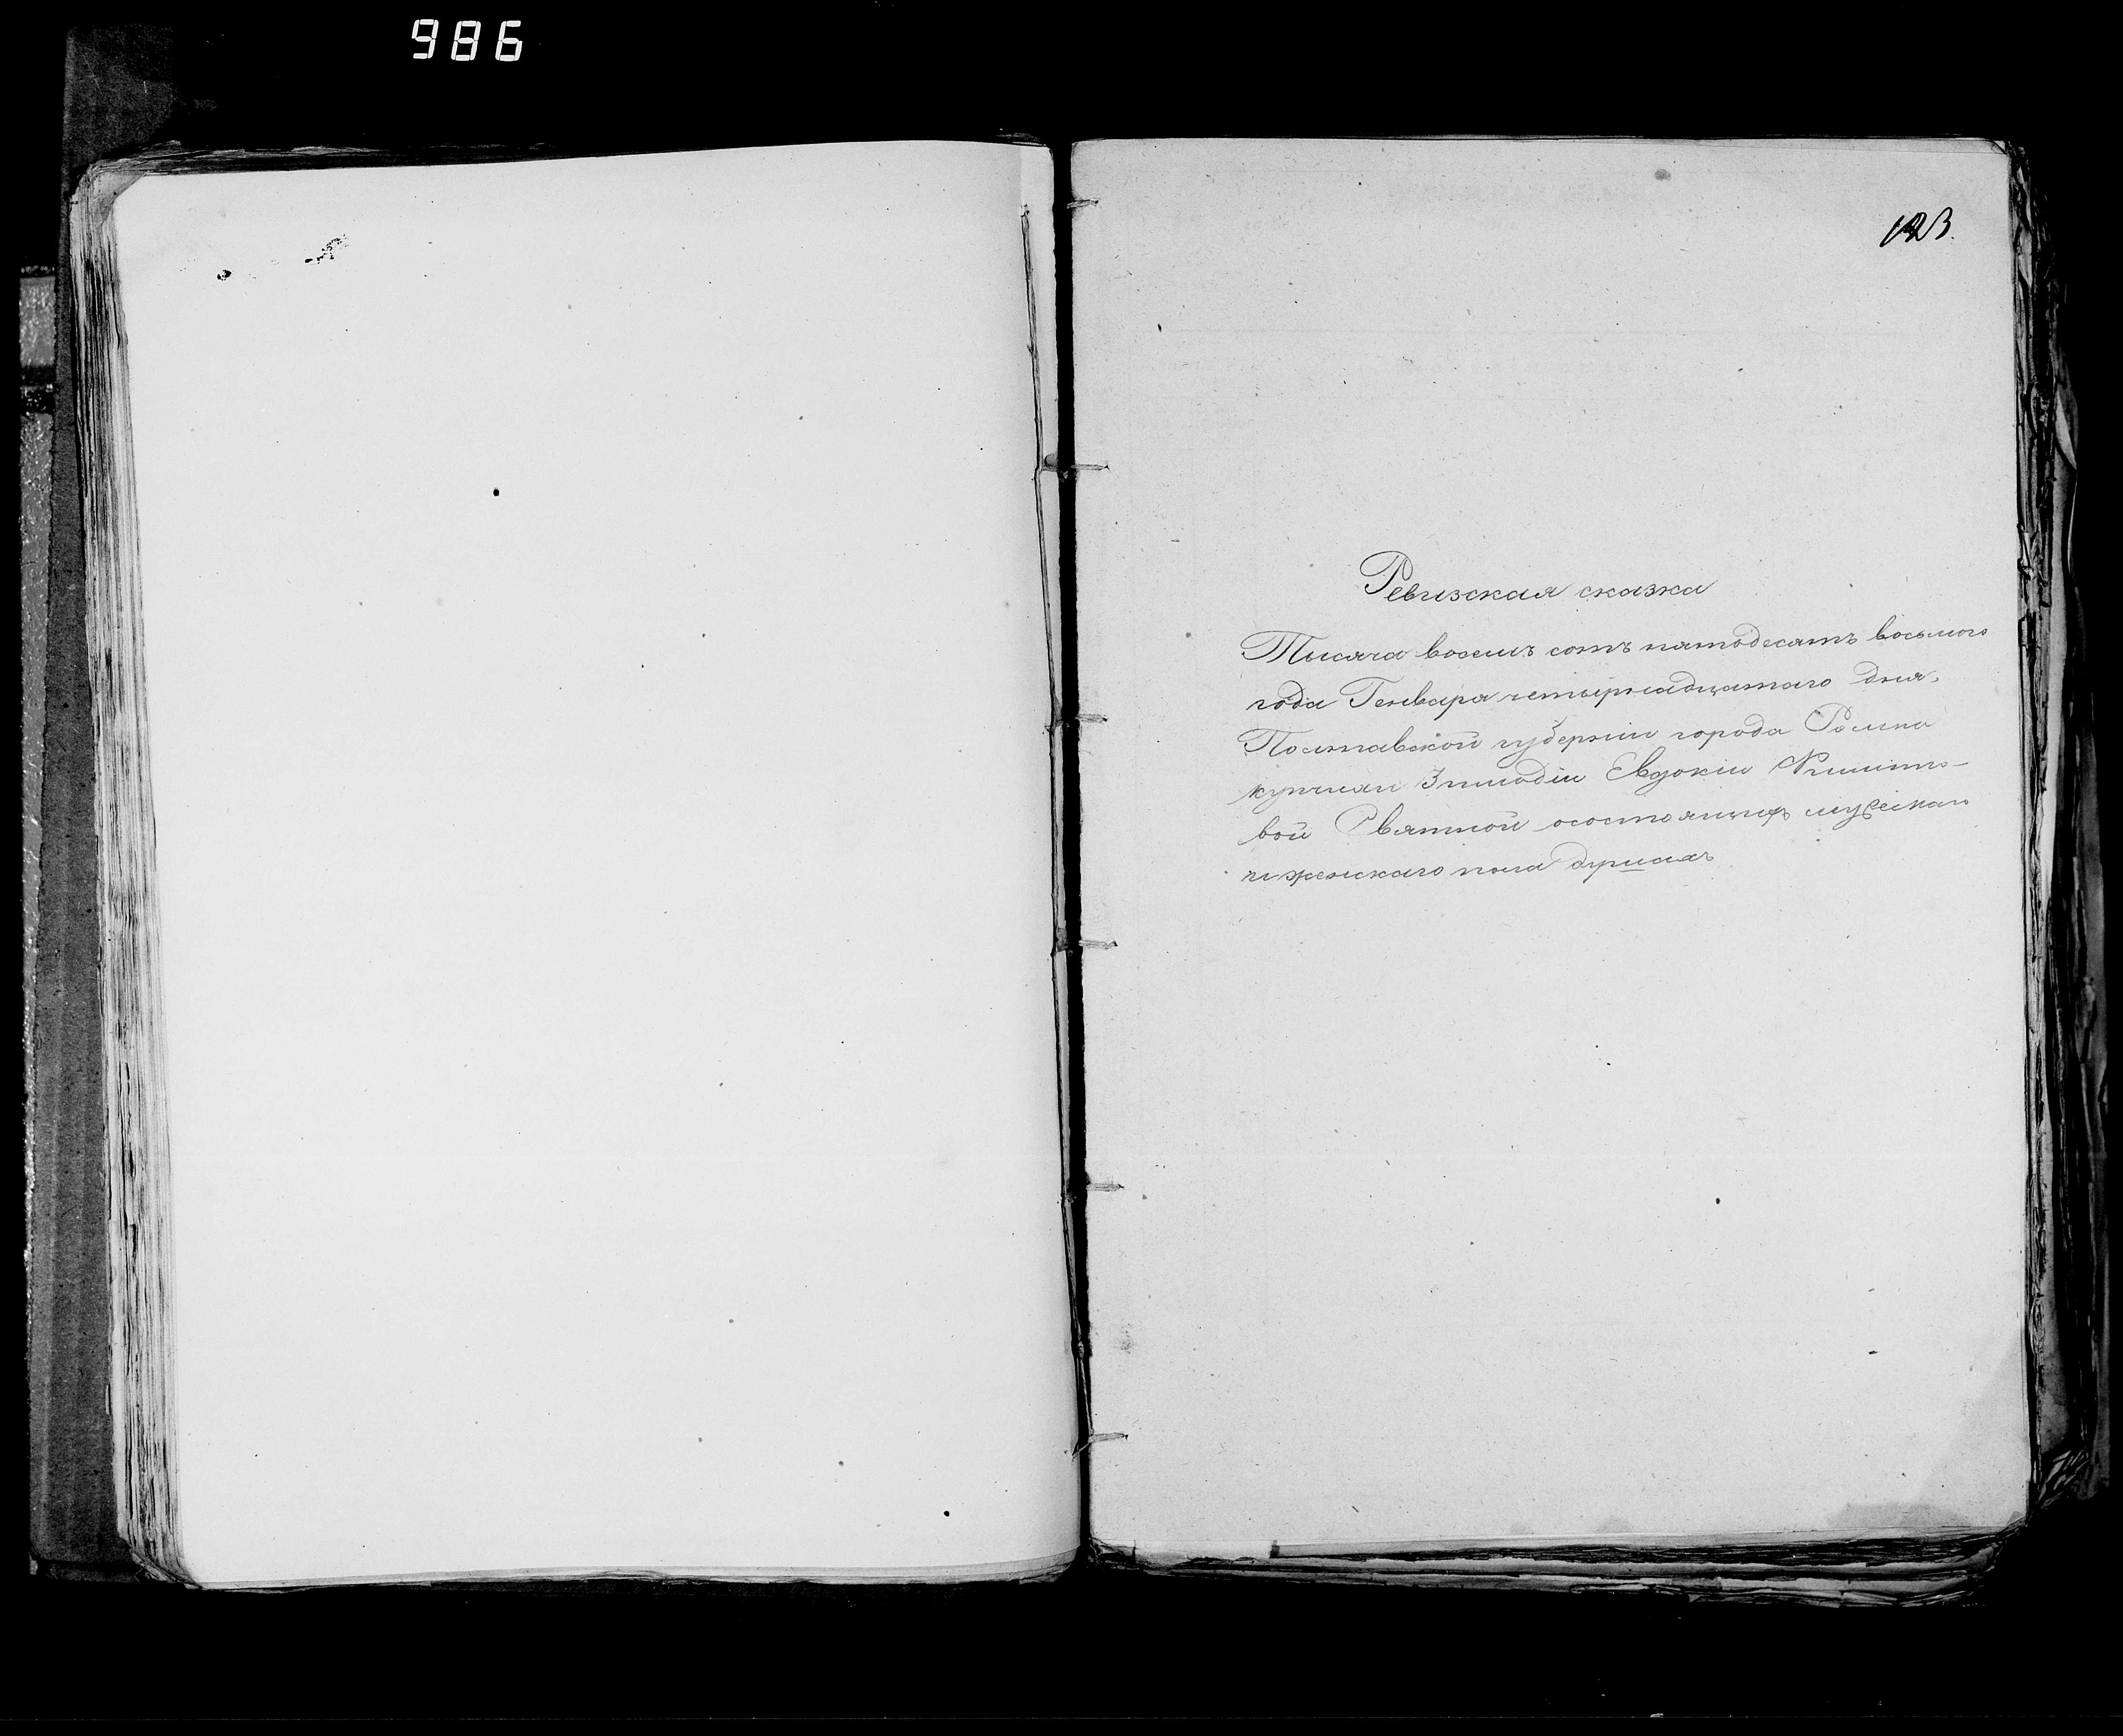 986
123.
Ревизская сказка
Тысяча восемъ сотъ пятодесятъ восьмого
года Генваря четырнадцатаго дня,
Полтавской губерніи города Ромна
купчихи 3 гильдіи Евдокіи
вой осостоящихъ мужескаго
и женскаго пола душахъ